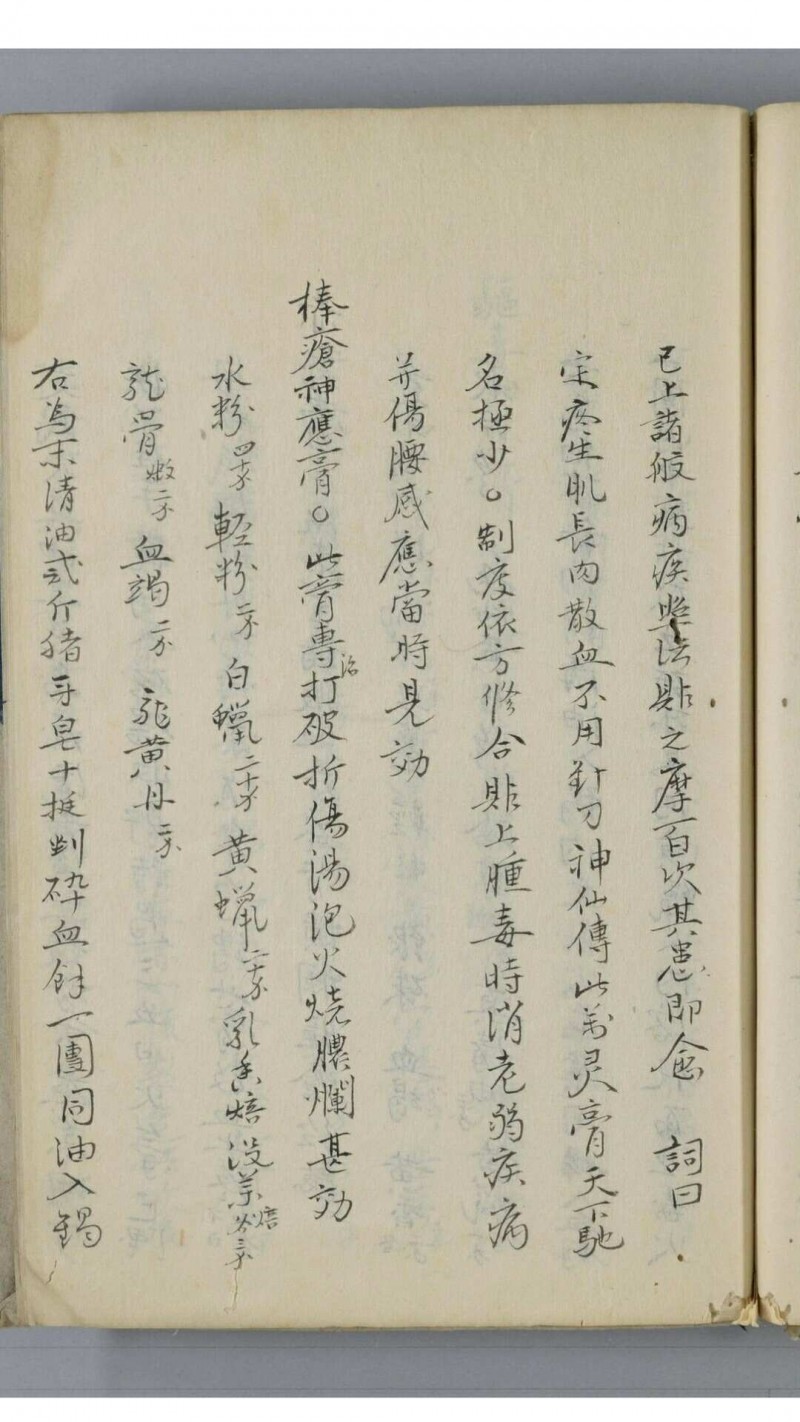 已上諸般病疾照法貼之摩一百次其患即愈 詞曰
定疼生肌長肉散血不用針刀神仙傳此萬灵膏天下馳
名極少○制度依方修合貼上腫毒時消老弱疾病
并傷腰感應當時見効
棒瘡神應膏○此膏專治打破折傷湯泡火燒膿爛甚効
水粉 輕粉 白蠟 黃蠟 乳香焙 沒藥焙
龍骨 血竭 飛黃丹
右為末清油弍斤猪牙皂十挺剉碎血餘一團同油入鍋